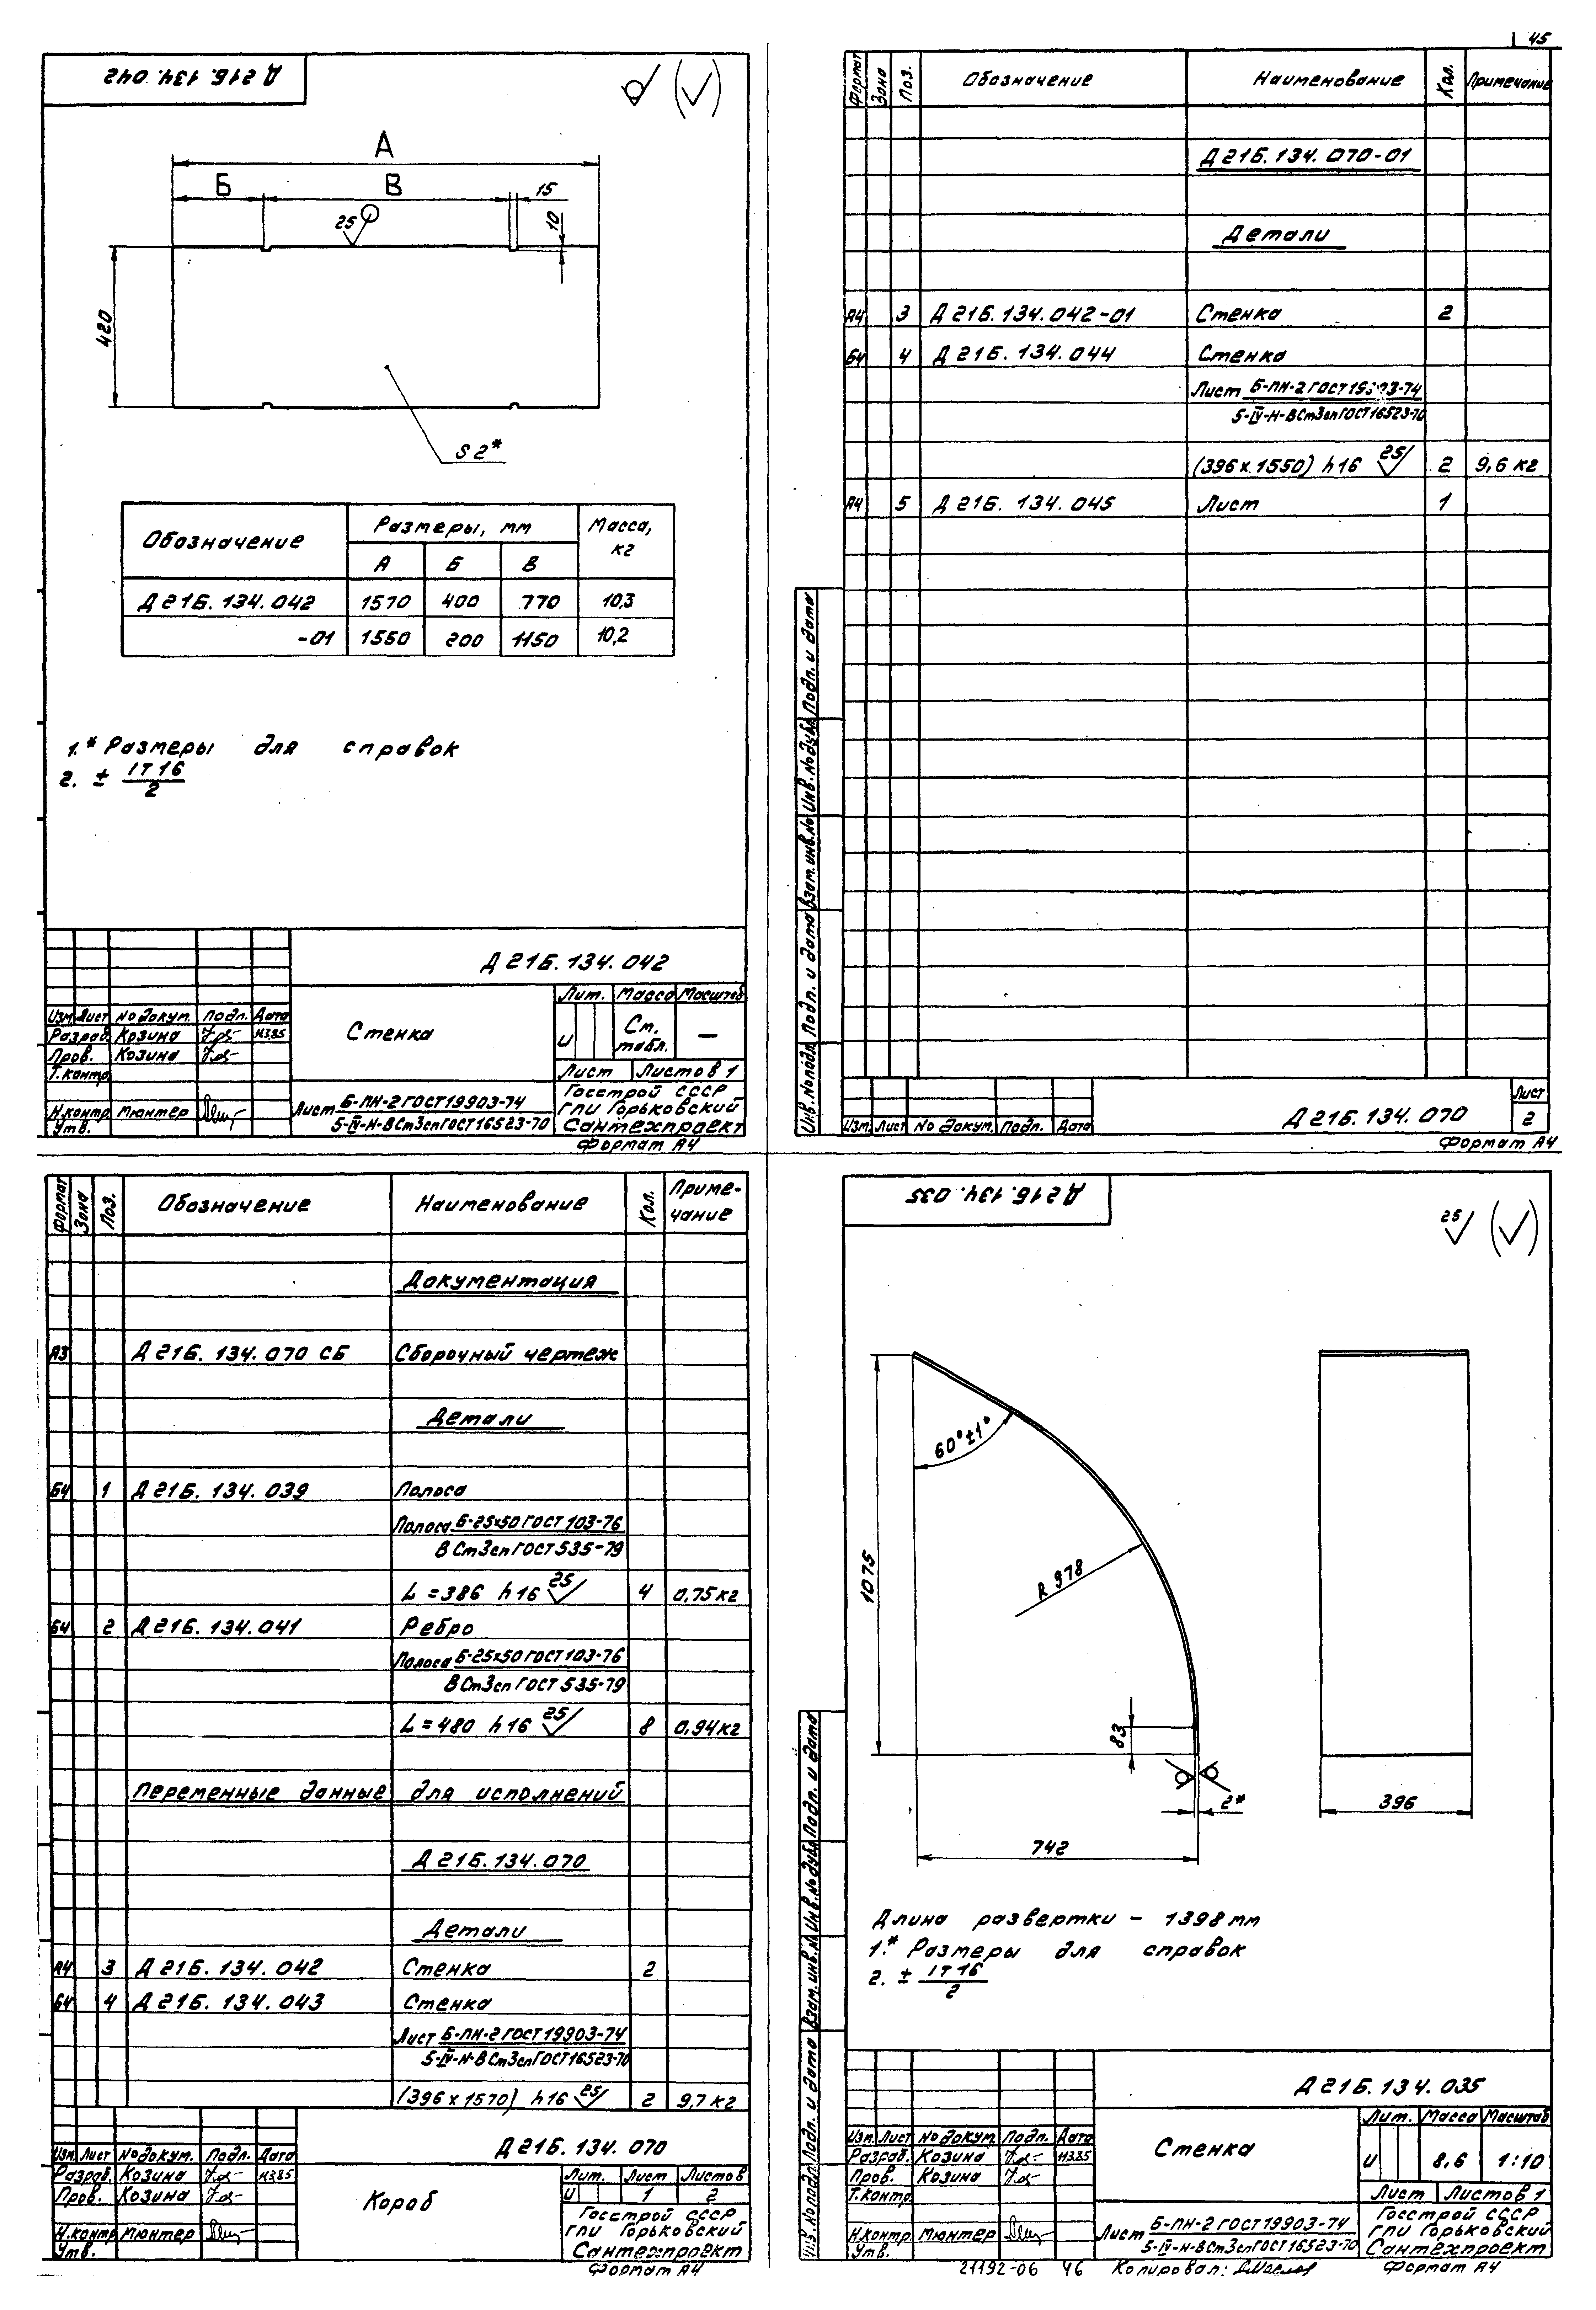 45
Д 21Б. 134. 042
А
Б В 15
10
25
420
S 2*
Обозначение Размеры, мм Масса, кг
А Б В
Д 21Б. 134. 042 1570 400 770 10,3
-01 1550 200 1150 10,2
1.* Размеры для справок
2. ± IT 16
2
Д 21Б. 134. 042
Стенка
Лит. Масса Масштаб
И См. табл. —
Лист Листов 1
Изм. Лист № докум. Подп. Дата
Разраб. Козина
Пров. Козина
Т. контр.
Н.контр. Мюнтер
Утв.
Лист Б-ПН-2 ГОСТ 19903-74
5-IV-Н-ВСт3сп ГОСТ 16523-70
Госстрой СССР
ГПИ Горьковский
Сантехпроект
Формат А4
Формат Зона Поз. Обозначение Наименование Кол. Примечание
Д 21Б. 134. 070-01
Детали
А4 3 Д 21Б. 134. 042-01 Стенка 2
Б4 4 Д 21Б. 134. 044 Стенка
Лист Б-ПН-2 ГОСТ 19903-74
5-IV-Н-ВСт3сп ГОСТ 16523-70
(396 х 1550) h16 25 2 9,6 кг
А4 5 Д 21Б. 134. 045 Лист 1
Инв. № подл. Подп. и дата Взам. инв. № Инв. № дубл. Подп. и дата
Изм. Лист № докум. Подп. Дата
Д 21Б. 134. 070
Лист
2
Формат А4
Формат Зона Поз. Обозначение Наименование Кол. Приме-
чание
Документация
А3 Д 21Б. 134. 070 СБ Сборочный чертеж
Детали
Б4 1 Д 21Б. 134. 039 Полоса
Полоса Б-25х50 ГОСТ 103-76
ВСт3сп ГОСТ 535-79
L = 386 h16 25 4 0,75 кг
Б4 2 Д 21Б. 134. 041 Ребро
Полоса Б-25х50 ГОСТ 103-76
ВСт3сп ГОСТ 535-79
L = 480 h16 25 8 0,94 кг
Переменные данные для исполнений
Д 21Б. 134. 070
Детали
А4 3 Д 21Б. 134. 042 Стенка 2
Б4 4 Д 21Б. 134. 043 Стенка
Лист Б-ПН-2 ГОСТ 19903-74
5-IV-Н-ВСт3сп ГОСТ 16523-70
(396 х 1570) h16 25 2 9,7 кг
Д 21Б. 134. 070
Изм. Лист № докум. Подп. Дата
Разраб. Козина
Пров. Козина
Н.контр. Мюнтер
Утв.
Короб
Лит. Лист Листов
И 1 2
Госстрой СССР
ГПИ Горьковский
Сантехпроект
Формат А4
Д 21Б. 134. 035
25
60°±1°
1075
R 978
83
2*
742
396
Длина развертки – 1398 мм
1.* Размеры для справок
2. ± IT 16
2
Инв. № подл. Подп. и дата Взам. инв. № Инв. № дубл. Подп. и дата
Д 21Б. 134. 035
Стенка
Лит. Масса Масштаб
И 8,6 1:10
Лист Листов 1
Изм. Лист № докум. Подп. Дата
Разраб. Козина
Пров. Козина
Т. контр.
Н.контр. Мюнтер
Утв.
Лист Б-ПН-2 ГОСТ 19903-74
5-IV-Н-ВСт3сп ГОСТ 16523-70
Госстрой СССР
ГПИ Горьковский
Сантехпроект
21192-06 46 Копировал: Формат А4